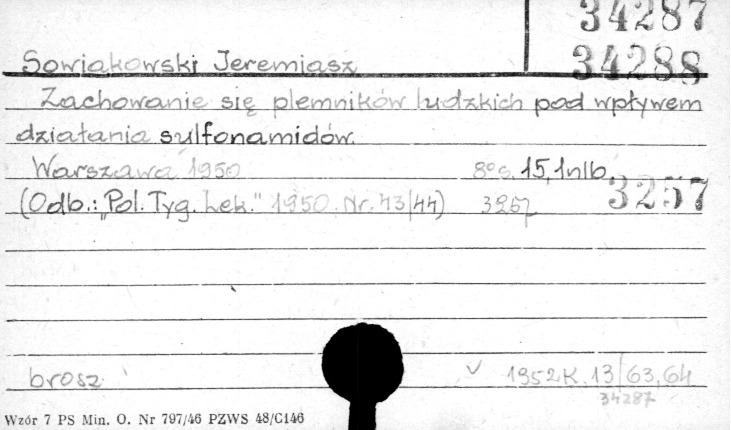 34287
34288
Sowiakowski Jeremiasz
Zachowanie się plemników ludzkich pod wpływem
działania sulfonamidów.
Warszawa 1950 8° s. 15, 1 nlb.
(Odb.: „Pol. Tyg. Lek." 1950. Nr. 43/44) 3257 3257
brosz. v 1952 K. 13/63,64
34287
Wzór 7 PS Min. O. Nr 797/46 PZWS 48/C146